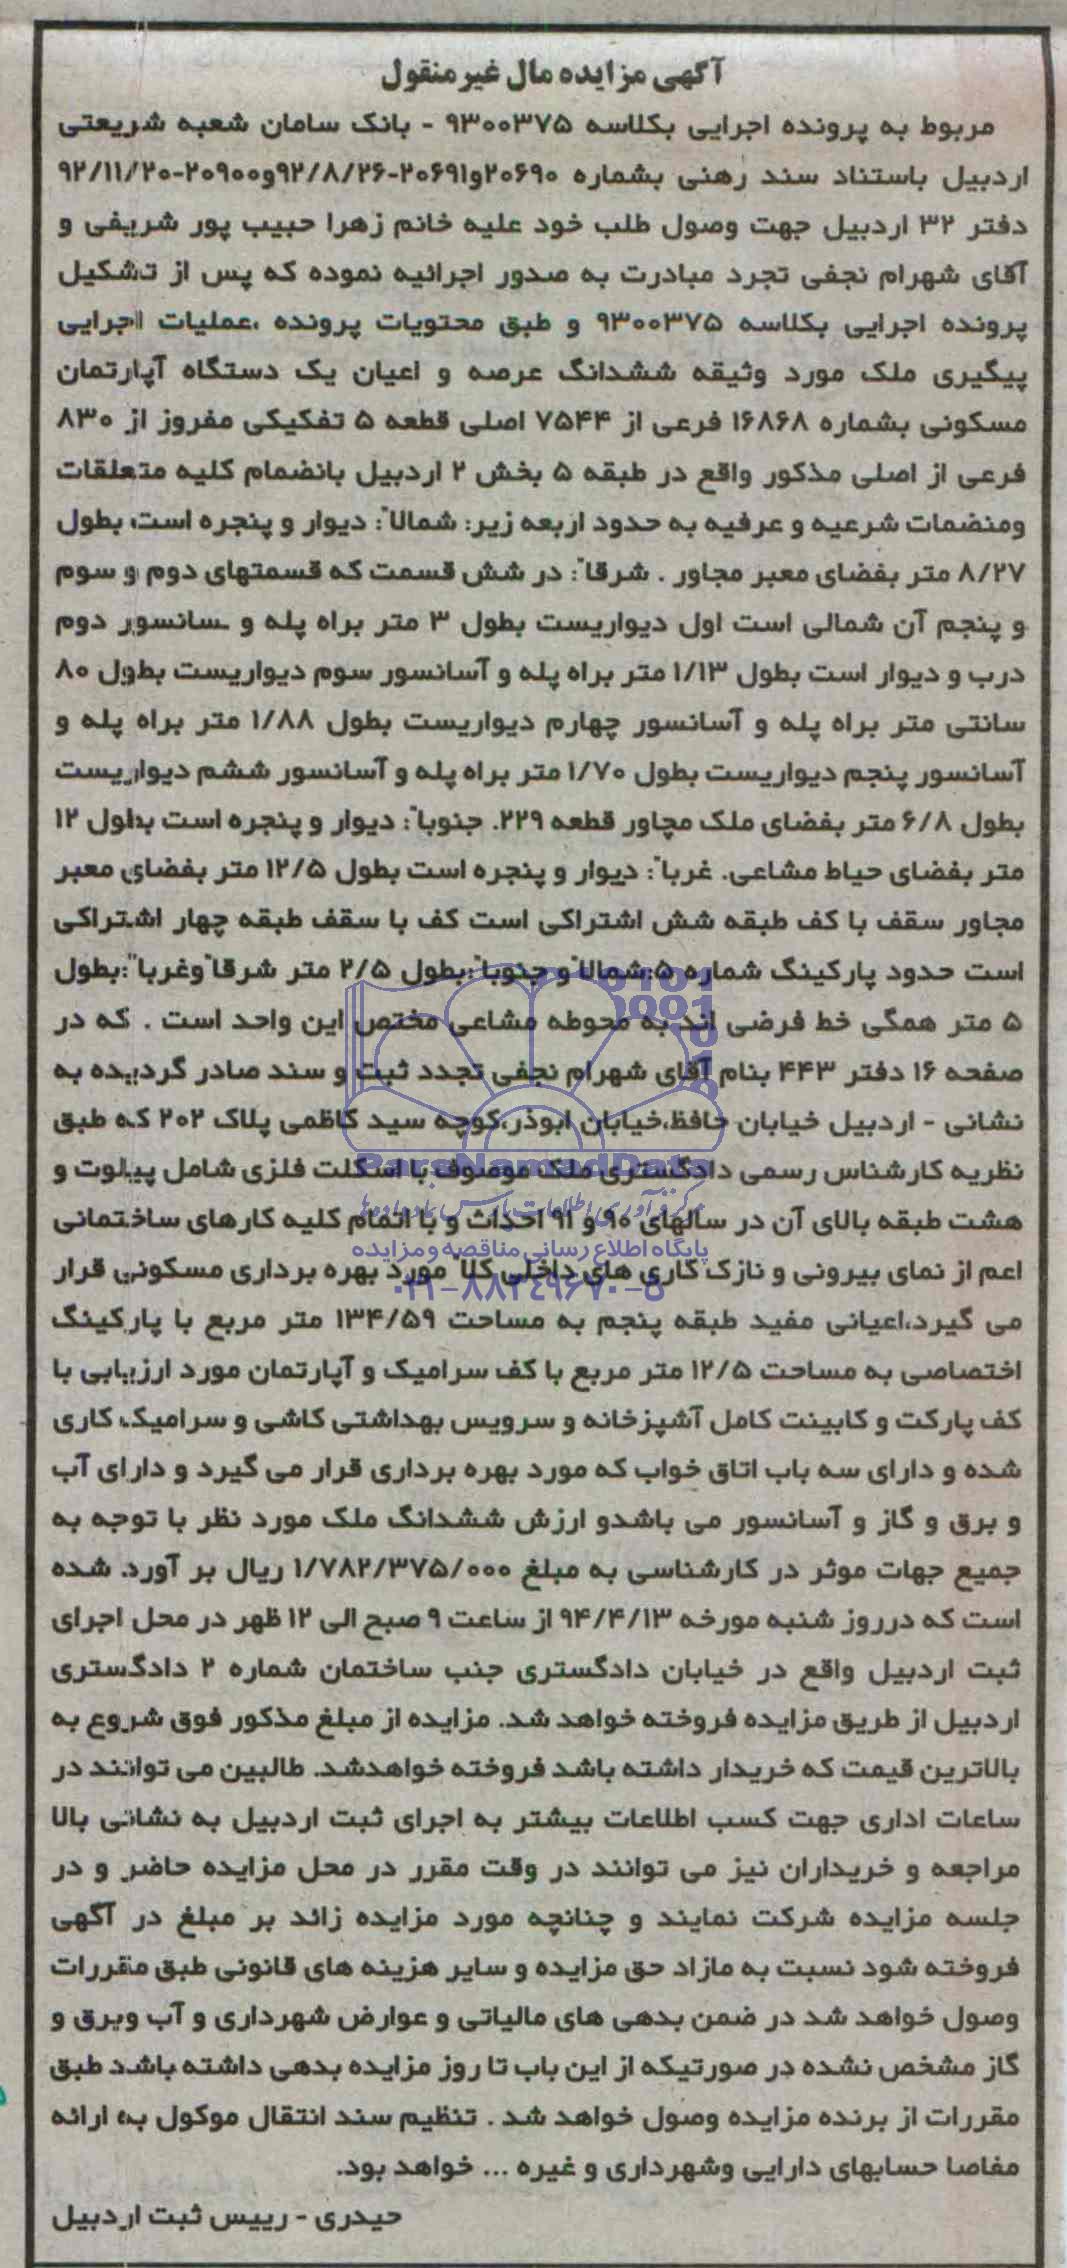 آگهی مزایده مال غیرمنقول
مربوط به پرونده اجرایی بکلاسه ۹۳۰۰۳۷۵ - بانک سامان شعبه شریعتی
اردبیل باستناد سند رهنی بشماره ۲۰۶۹۰و۲۰۶۹۱-۹۲/۸/۲۶و۲۰۹۰۰-۹۲/۱۱/۲۰
دفتر ۳۲ اردبیل جهت وصول طلب خود علیه خانم زهرا حبیب پور شریفی و
آقای شهرام نجفی تجرد مبادرت به صدور اجرائیه نموده که پس از تشکیل
پرونده اجرایی بکلاسه ۹۳۰۰۳۷۵ و طبق محتویات پرونده ،عملیات اجرایی
پیگیری ملک مورد وثیقه ششدانگ عرصه و اعیان یک دستگاه آپارتمان
مسکونی بشماره ۱۶۸۶۸ فرعی از ۷۵۴۴ اصلی قطعه ۵ تفکیکی مفروز از ۸۳۰
فرعی از اصلی مذکور واقع در طبقه ۵ بخش ۲ اردبیل بانضمام کلیه متعلقات
ومنضمات شرعیه و عرفیه به حدود اربعه زیر: شمالاً: دیوار و پنجره است بطول
۸/۲۷ متر بفضای معبر مجاور . شرقاً: در شش قسمت که قسمتهای دوم و سوم
و پنجم آن شمالی است اول دیواریست بطول ۳ متر براه پله و سانسور دوم
درب و دیوار است بطول ۱/۱۳ متر براه پله و آسانسور سوم دیواریست بطول ۸۰
سانتی متر براه پله و آسانسور چهارم دیواریست بطول ۱/۸۸ متر براه پله و
آسانسور پنجم دیواریست بطول ۱/۷۰ متر براه پله و آسانسور ششم دیواریست
بطول ۶/۸ متر بفضای ملک مجاور قطعه ۲۲۹. جنوباً: دیوار و پنجره است بطول ۱۲
متر بفضای حیاط مشاعی. غرباً: دیوار و پنجره است بطول ۱۲/۵ متر بفضای معبر
مجاور سقف با کف طبقه شش اشتراکی است کف با سقف طبقه چهار اشتراکی
است حدود پارکینگ شماره ۵:شمالاً و جنوباً:بطول ۲/۵ متر شرقاً وغرباً:بطول
۵ متر همگی خط فرضی اند به محوطه مشاعی مختص این واحد است . که در
صفحه ۱۶ دفتر ۴۴۳ بنام آقای شهرام نجفی تجدد ثبت و سند صادر گردیده به
نشانی - اردبیل خیابان حافظ،خیابان ابوذر،کوچه سید کاظمی پلاک ۲۰۲ که طبق
نظریه کارشناس رسمی دادگستری ملک موصوف با اسکلت فلزی شامل پیلوت و
هشت طبقه بالای آن در سالهای ۹۰ و ۹۱ احداث و با اتمام کلیه کارهای ساختمانی
اعم از نمای بیرونی و نازک کاری های داخلی کلاً مورد بهره برداری مسکونی قرار
می گیرد،اعیانی مفید طبقه پنجم به مساحت ۱۳۴/۵۹ متر مربع با پارکینگ
اختصاصی به مساحت ۱۲/۵ متر مربع با کف سرامیک و آپارتمان مورد ارزیابی با
کف پارکت و کابینت کامل آشپزخانه و سرویس بهداشتی کاشی و سرامیک کاری
شده و دارای سه باب اتاق خواب که مورد بهره برداری قرار می گیرد و دارای آب
و برق و گاز و آسانسور می باشدو ارزش ششدانگ ملک مورد نظر با توجه به
جمیع جهات موثر در کارشناسی به مبلغ ۱/۷۸۲/۳۷۵/۰۰۰ ریال بر آورد شده
است که درروز شنبه مورخه ۹۴/۴/۱۳ از ساعت ۹ صبح الی ۱۲ ظهر در محل اجرای
ثبت اردبیل واقع در خیابان دادگستری جنب ساختمان شماره ۲ دادگستری
اردبیل از طریق مزایده فروخته خواهد شد. مزایده از مبلغ مذکور فوق شروع به
بالاترین قیمت که خریدار داشته باشد فروخته خواهدشد. طالبین می توانند در
ساعات اداری جهت کسب اطلاعات بیشتر به اجرای ثبت اردبیل به نشانی بالا
مراجعه و خریداران نیز می توانند در وقت مقرر در محل مزایده حاضر و در
جلسه مزایده شرکت نمایند و چنانچه مورد مزایده زائد بر مبلغ در آگهی
فروخته شود نسبت به مازاد حق مزایده و سایر هزینه های قانونی طبق مقررات
وصول خواهد شد در ضمن بدهی های مالیاتی و عوارض شهرداری و آب وبرق و
گاز مشخص نشده در صورتیکه از این باب تا روز مزایده بدهی داشته باشد طبق
مقررات از برنده مزایده وصول خواهد شد . تنظیم سند انتقال موکول به ارائه
مفاصا حسابهای دارایی وشهرداری و غیره ... خواهد بود.
حیدری - رییس ثبت اردبیل
ParsNamadData
مرکز فرآوری اطلاعات پارس نماد داده ها
پایگاه اطلاع رسانی مناقصه و مزایده
۰۲۱-۸۸۳۴۹۶۷۰-۵